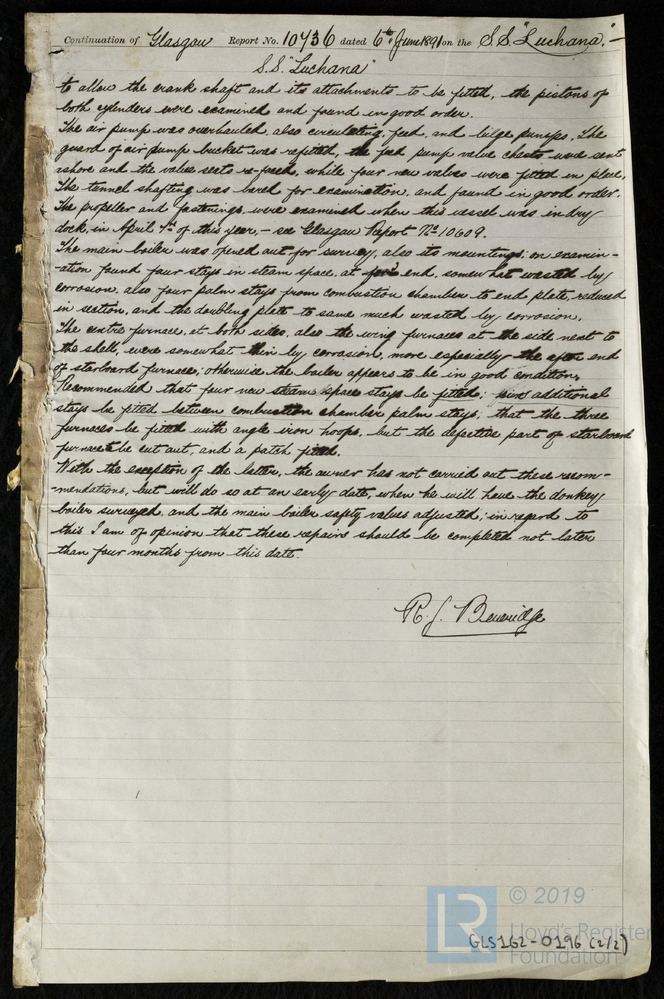 Continuation of Glasgow Report No. 10736 dated 6th June 1891 on the S.S. "Luchana".
S.S. "Luchana"
to allow the crank shaft and its attachments to be fitted, the pistons of
both cylinders were examined and found in good order.
The air pump was overhauled, also circulating, feed, and bilge pumps. The
guard of air pump bucket was refitted, the feed pump valve chests were sent
ashore and the valve seats re-faced, while four new valves were fitted in place.
The tunnel shafting was bared for examination, and found in good order.
The propeller and fastenings were examined when this vessel was in dry
dock, in April of this year, - see Glasgow Report No 10609.
The main boiler was opened out for survey, also its mountings; on examin-
-ation found four stays in steam space, at end, somewhat wasted by
corrosion, also four palm stays from combustion chamber to end plate, reduced
in section, and the doubling plate to same much wasted by corrosion.
The centre furnace, at both sides, also the wing furnaces at the side next to
the shell, were somewhat thin by corrosion, more especially the after end
of starboard furnace; otherwise the boiler appears to be in good condition.
Recommended that four new steam space stays be fitted; nine additional
stays be fitted between combustion chamber palm stays; that the three
furnaces be fitted with angle iron hoops, but the defective part of starboard
furnace to be cut out, and a patch fitted.
With the exception of the latter, the owner has not carried out these recom-
-mendations, but will do so at an early date, when he will have the donkey
boiler surveyed, and the main boiler safety valves adjusted; in regard to
this I am of opinion that these repairs should be completed not later
than four months from this date.
R. J. Beveridge
LR © 2019
Lloyd's Register
Foundation
GLS162-0196 (2/2)